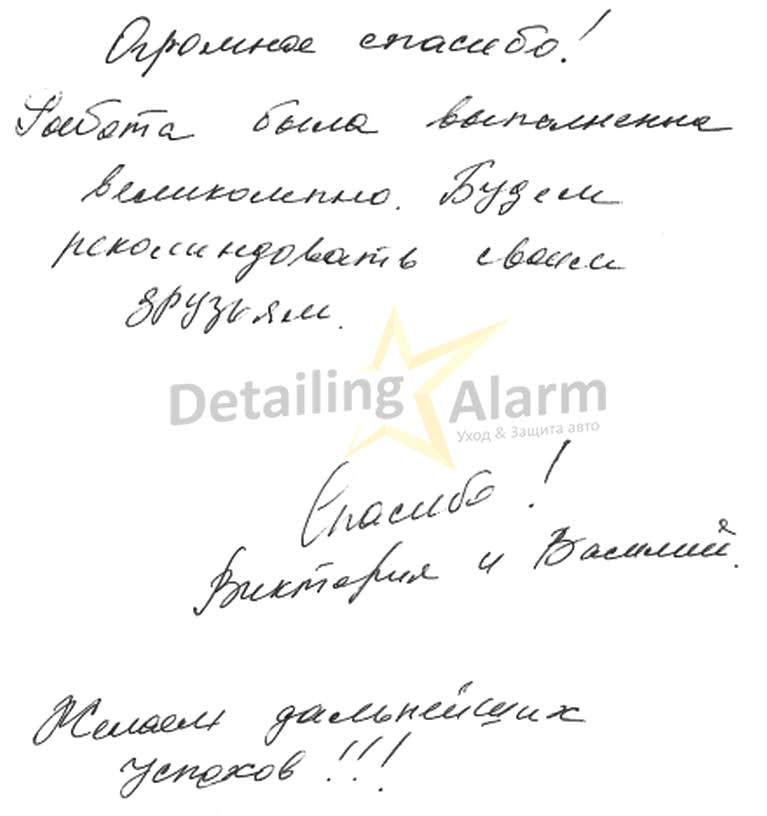 Огромное спасибо!
Работа была выполненна
великолепно. Будем
рекоминдовать своим
друзьям.
Detailing Alarm
Уход & Защита авто
Спасибо!
Виктория и Василий.
Желаем дальнейших
успехов!!!